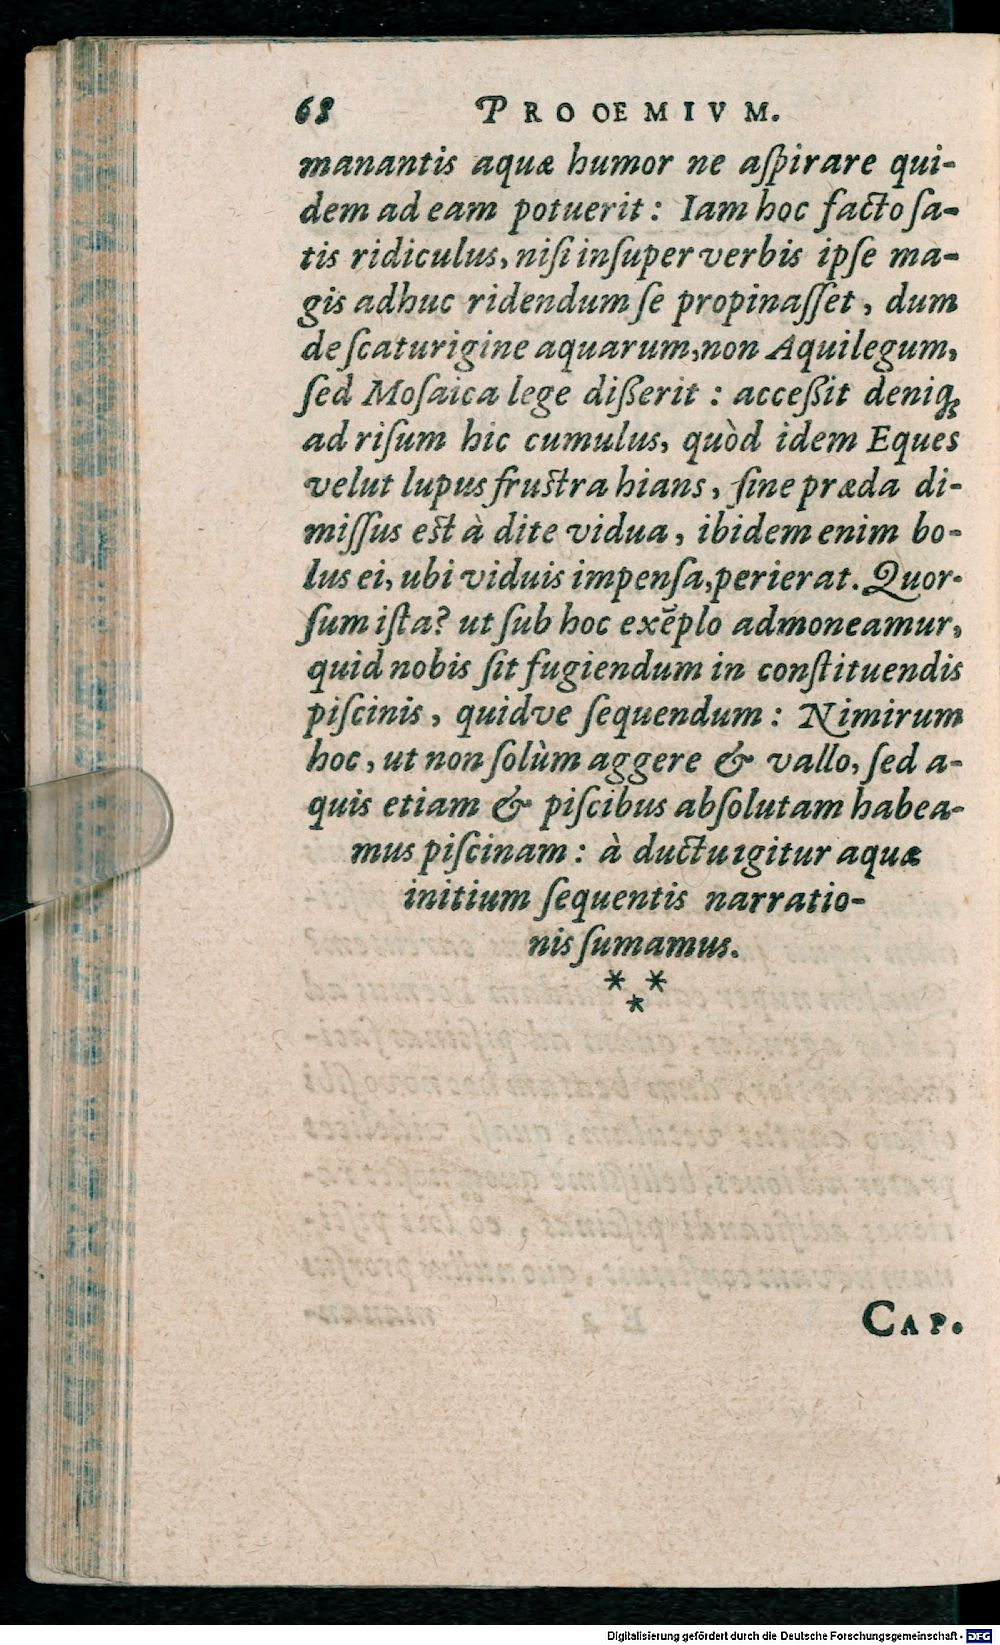 68 PROOEMIVM.
manantis aquæ humor ne aſpirare qui-
dem ad eam potuerit: Iam hoc facto ſa-
tis ridiculus, niſi inſuper verbis ipſe ma-
gis adhuc ridendum ſe propinaſſet, dum
de ſcaturigine aquarum, non Aquilegum,
ſed Moſaica lege dißerit: acceßit deniqꝫ
ad riſum hic cumulus, quòd idem Eques
velut lupus fruſtra hians, ſine præda di-
miſſus eſt à dite vidua, ibidem enim bo-
lus ei, ubi viduis impenſa, perierat. Quor-
ſum iſta? ut ſub hoc exẽplo admoneamur,
quid nobis ſit fugiendum in conſtituendis
piſcinis, quidve ſequendum: Nimirum
hoc, ut non ſolùm aggere & vallo, ſed a-
quis etiam & piſcibus abſolutam habea-
mus piſcinam: à ductu igitur aquæ
initium ſequentis narratio-
nis ſumamus.
* *
*
CAP.
Digitalisierung gefördert durch die Deutsche Forschungsgemeinschaft - DFG